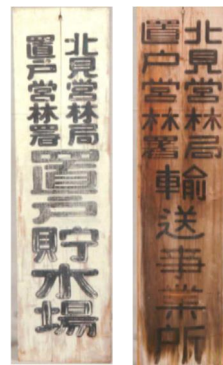 北見営林局
置戸営林署
置戸貯木場
北見営林局
置戸営林署
輸送事業所